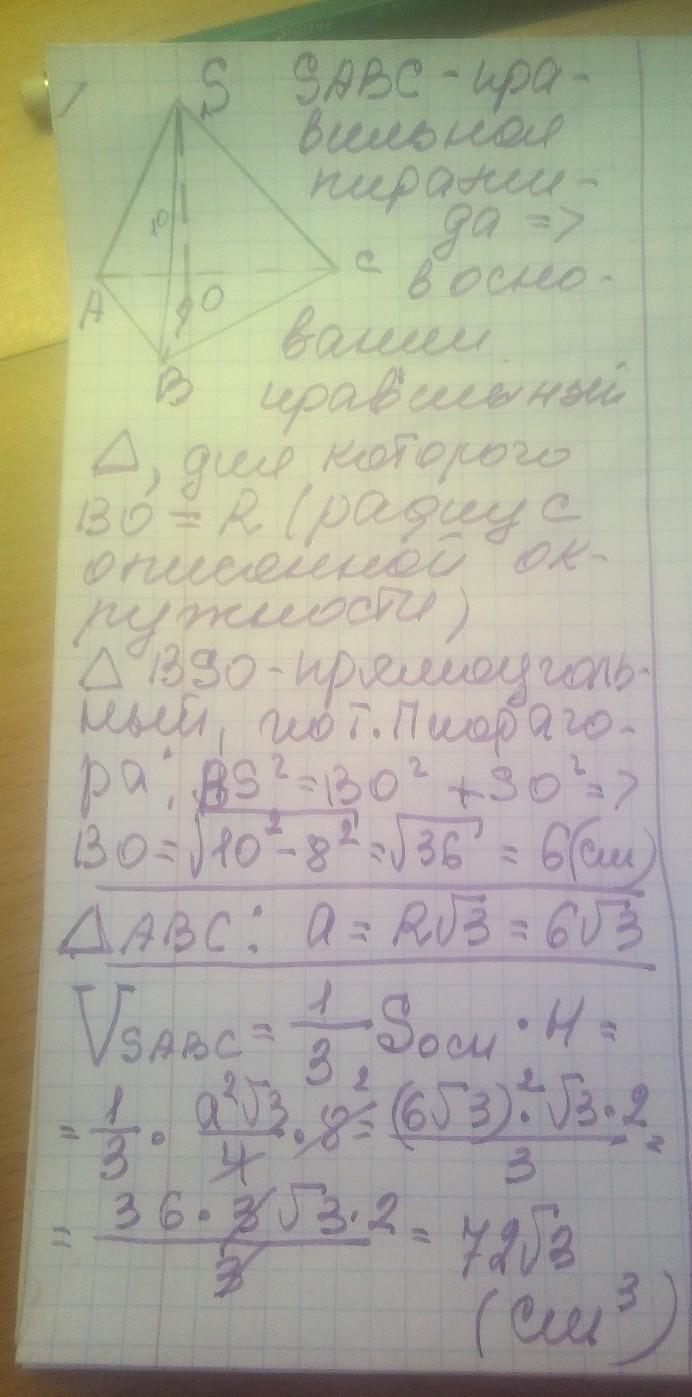 S SABC - пра-
вильная
пирами-
да =>
10
A O C в осно-
B
вании
правильный
Δ, для которого
BO = R (радиус
описанной ок-
ружности)
Δ BSO - прямоуголь-
ный, по т. Пифаго-
ра: BS² = BO² + SO² =>
BO = √10² - 8² = √36 = 6 (см)
Δ ABC: a = R√3 = 6√3
V SABC = 1/3 Sосн · H =
= 1/3 · a²√3/4 · 8² = (6√3)² · √3 · 2/3 =
= 36 · 3√3 · 2/3 = 72√3
(см³)